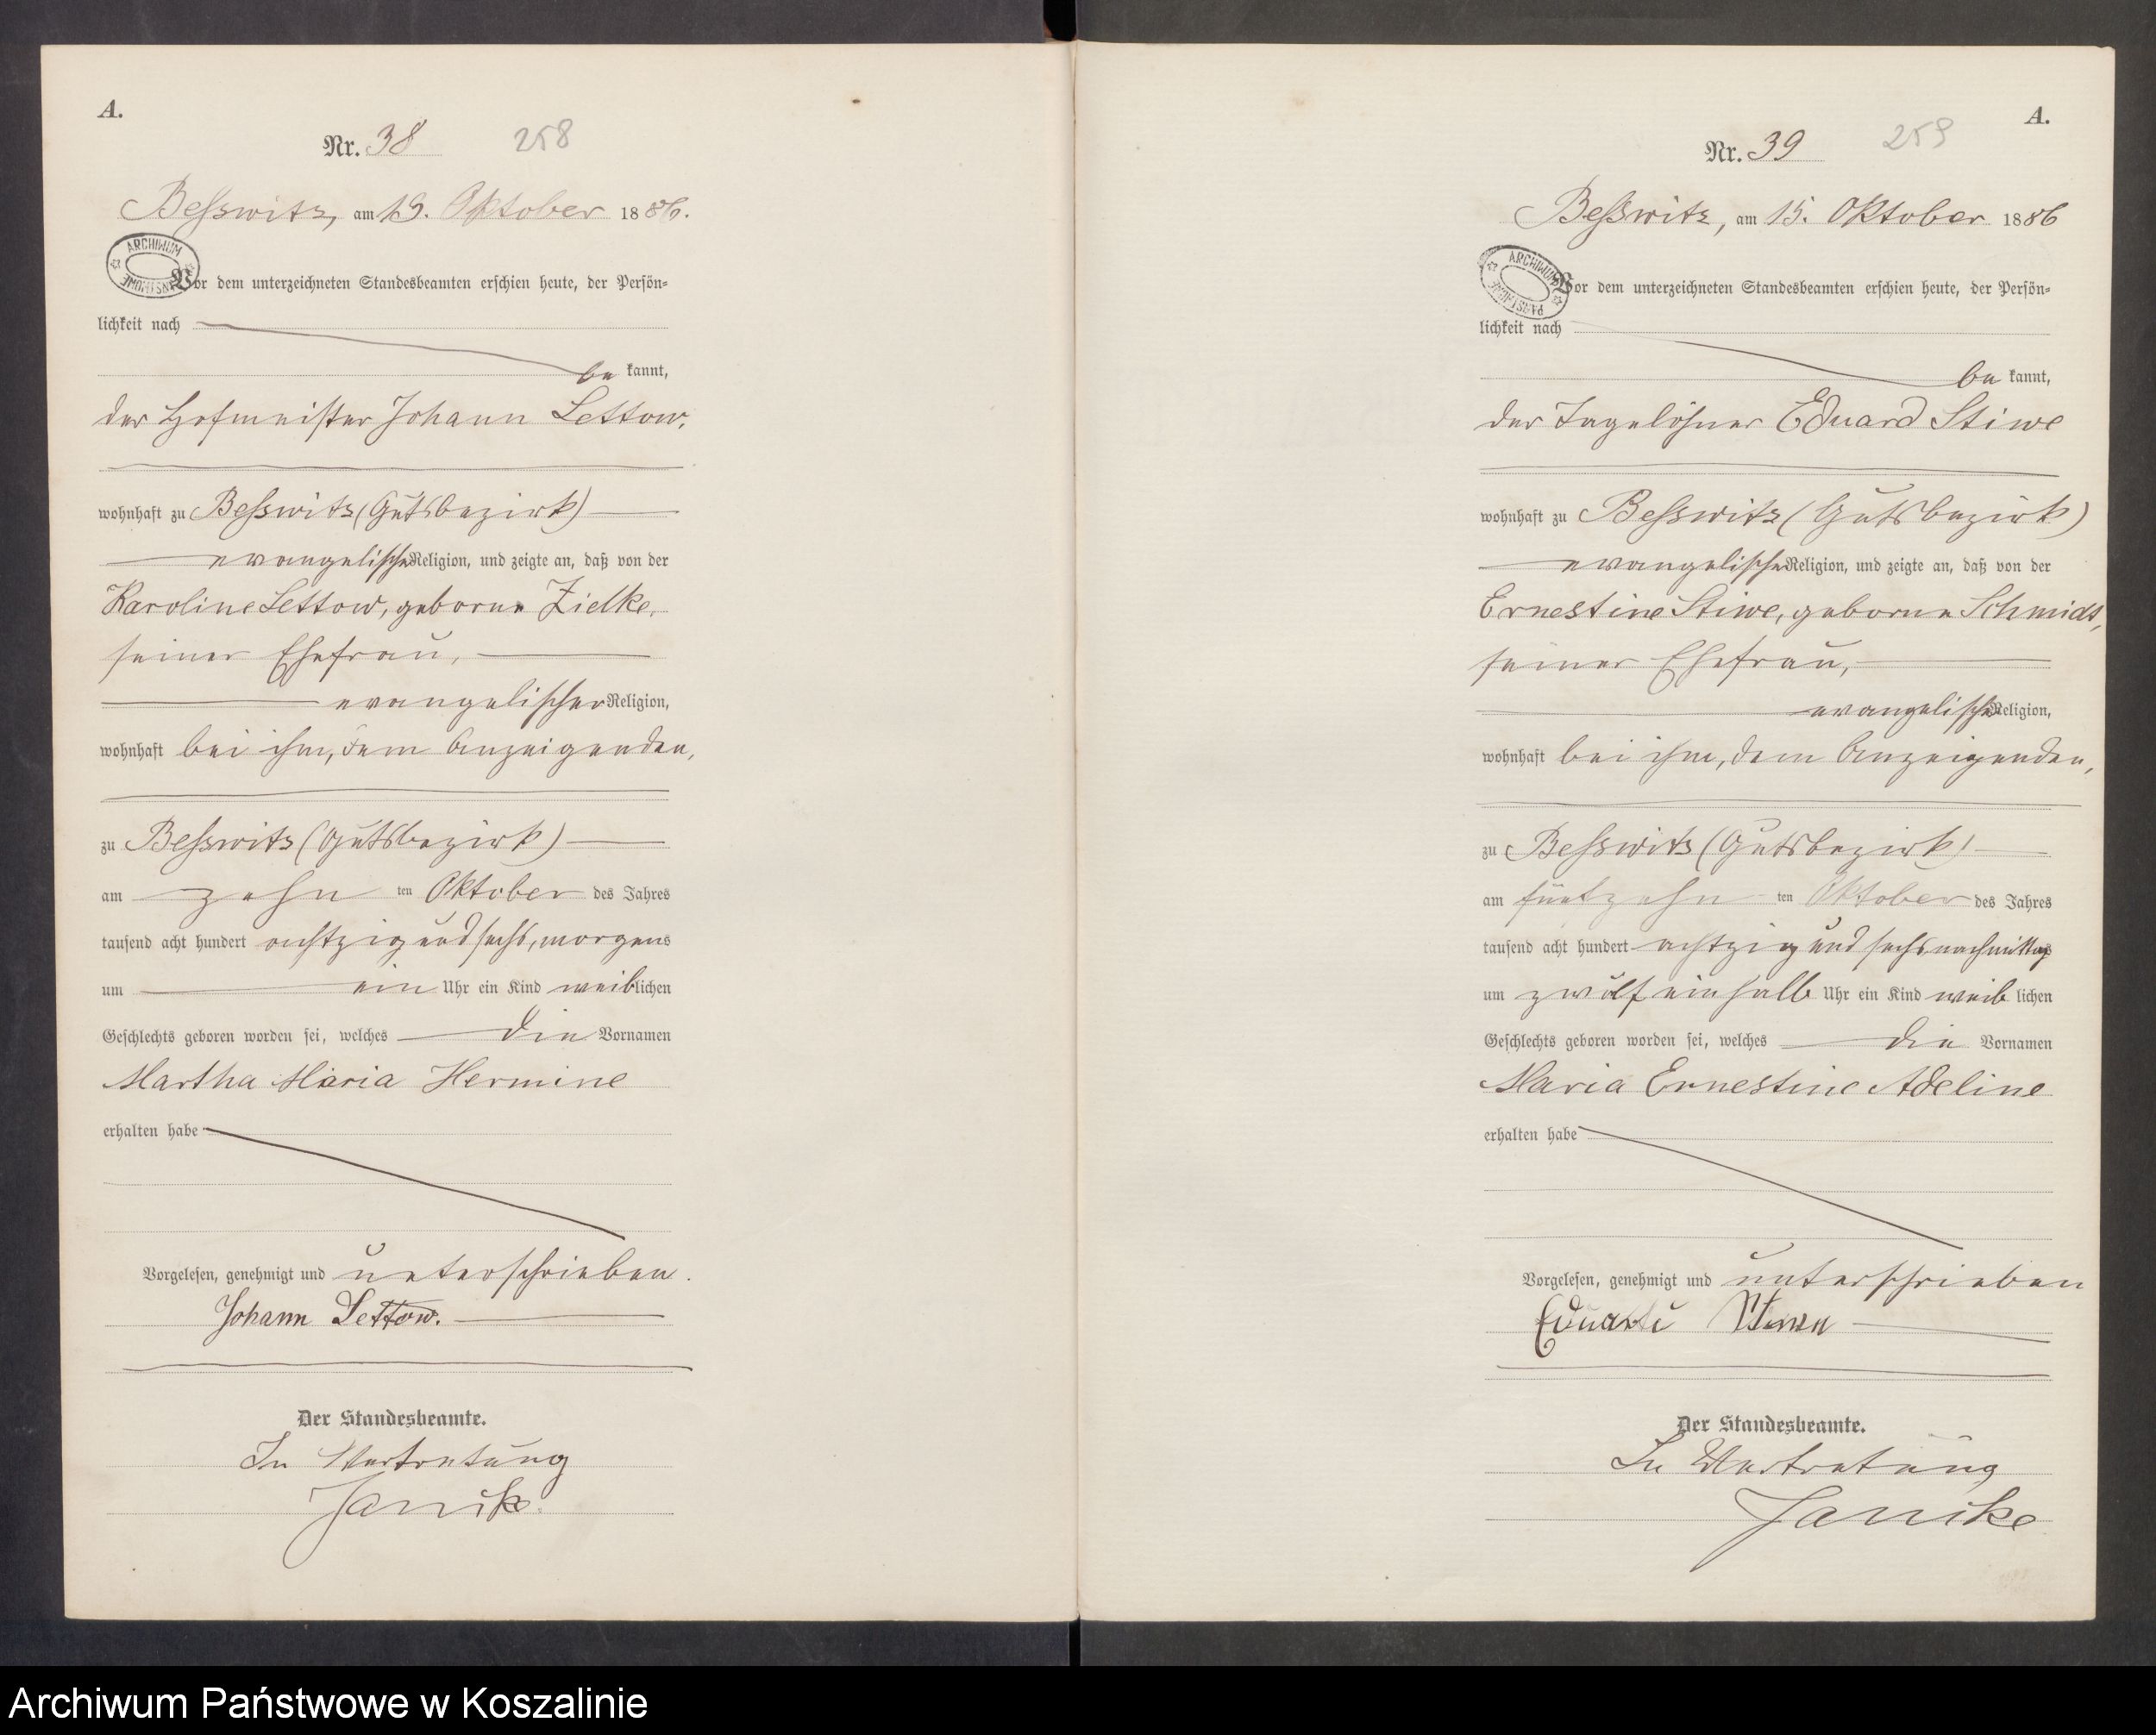 A.
Nr. 38
258
Besswitz, am 15. Oktober 1886.
ARCHIWUM
Vor dem unterzeichneten Standesbeamten erschien heute, der Persön=
lichkeit nach
be kannt,
der Hofmeister Johann Lettow,
wohnhaft zu Besswitz (Gutsbezirk)
evangelischer Religion, und zeigte an, daß von der
Karoline Lettow, geborne Zielke,
seiner Ehefrau,
evangelischer Religion,
wohnhaft bei ihm, dem Anzeigenden,
zu Besswitz (Gutsbezirk)
am zehn ten Oktober des Jahres
tausend acht hundert achtzig und sechs, morgens
um ein Uhr ein Kind weiblichen
Geschlechts geboren worden sei, welches die Vornamen
Martha Maria Hermine
erhalten habe
Vorgelesen, genehmigt und unterschrieben.
Johann Lettow.
Der Standesbeamte.
In Vertretung
Janike
A.
Nr. 39
259
Besswitz, am 15. Oktober 1886
ARCHIWUM PAŃSTWOWE
Vor dem unterzeichneten Standesbeamten erschien heute, der Persön=
lichkeit nach
be kannt,
der Tagelöhner Eduard Stiwe
wohnhaft zu Besswitz (Gutsbezirk)
evangelischer Religion, und zeigte an, daß von der
Ernestine Stiwe, geborne Schmidt,
seiner Ehefrau,
evangelischer Religion,
wohnhaft bei ihm, dem Anzeigenden,
zu Besswitz (Gutsbezirk)
am fünfzehn ten Oktober des Jahres
tausend acht hundert achtzig und sechs nachmittags
um zwölf ein halb Uhr ein Kind weib lichen
Geschlechts geboren worden sei, welches die Vornamen
Maria Ernestine Adeline
erhalten habe
Vorgelesen, genehmigt und unterschrieben
Der Standesbeamte.
In Vertretung
Janike
Archiwum Państwowe w Koszalinie